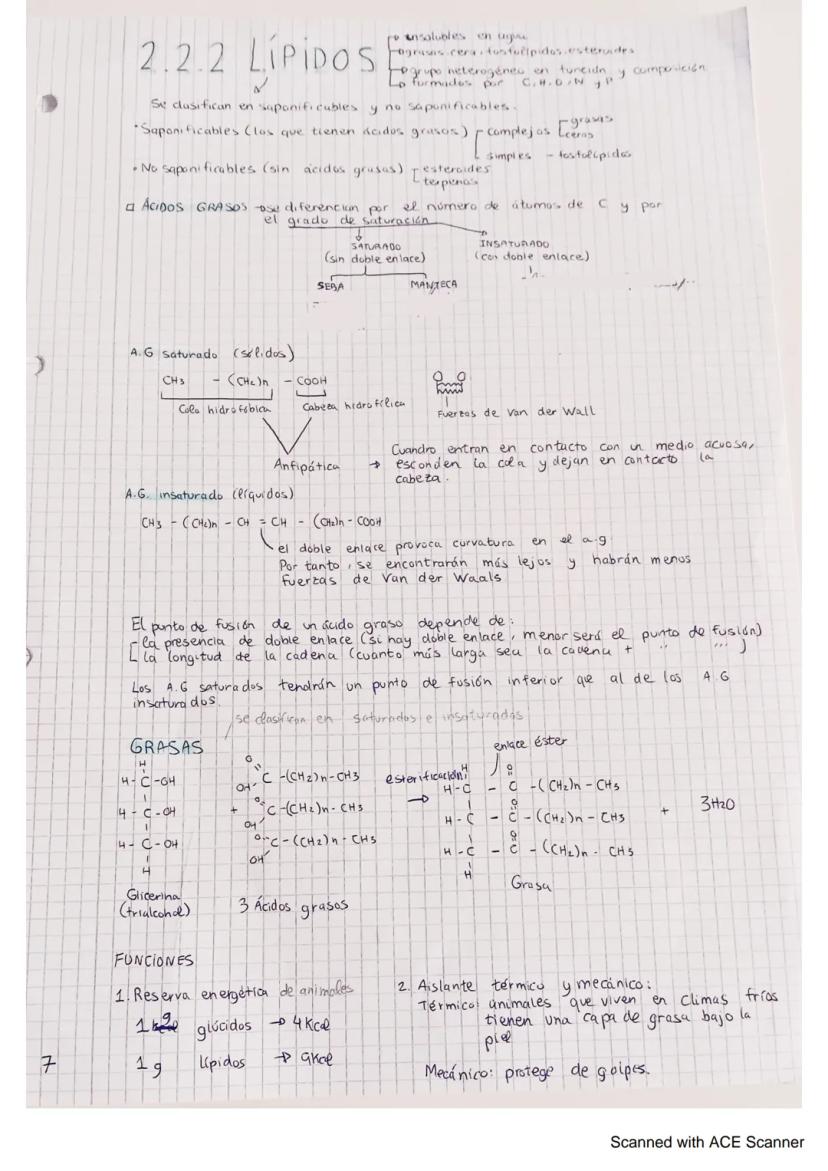 2.2.2 LÍPIDOS
insolubles en agua
grasas, cera, fosfolípidos, esteroides
grupo heterogéneo en función y composición
formados por C, H, O, N y P
Se clasifican en saponificables y no saponificables.
• Saponificables (los que tienen ácidos grasos)
complejos
grasas
ceras
simples - fosfolípidos
• No saponificables (sin ácidos grasos)
esteroides
terpenos
ÁCIDOS GRASOS → se diferencian por el número de átomos de C y por
el grado de saturación
SATURADO
(sin doble enlace)
INSATURADO
(con doble enlace)
SEBA
MANTECA
A.G saturado (sólidos)
CH3 - (CH2)n - COOH
Cola hidrófobica
Cabeza hidrofílica
Fuerzas de Van der Wall
Anfipática
→ Cuandro entran en contacto con un medio acuosa,
esconden la cola y dejan en contacto la
cabeza.
A.G. insaturado (líquidos)
CH3 - (CH2)n - CH = CH - (CH2)n - COOH
el doble enlace provoca curvatura en el a.g
Por tanto, se encontrarán más lejos y habrán menos
fuerzas de Van der Waals
El punto de fusión de un ácido graso depende de:
- la presencia de doble enlace (si hay doble enlace, menor será el punto de fusión)
la longitud de la cadena (cuanto más larga sea la cadena + " ... )
Los A.G saturados tendrán un punto de fusión inferior que al de los A.G
insaturados.
se clasifican en saturados e insaturados
GRASAS
enlace éster
H
H - C - OH
H - C - OH
H - C - OH
H
O
C - (CH2)n - CH3
OH
+
O
C - (CH2)n - CH3
OH
O
C - (CH2)n - CH3
OH
esterificación
→
H
O
H - C - C - (CH2)n - CH3
O
H - C - C - (CH2)n - CH3
O
H - C - C - (CH2)n - CH3
H
+ 3H2O
Glicerina
(trialcohol)
3 Ácidos grasos
Grasa
FUNCIONES
1. Reserva energética de animales
1 g glúcidos → 4 Kcal
1 g lípidos → 9Kcal
2. Aislante térmico y mecánico:
Térmico: animales que viven en climas fríos
tienen una capa de grasa bajo la
piel
Mecánico: protege de golpes.
7
Scanned with ACE Scanner